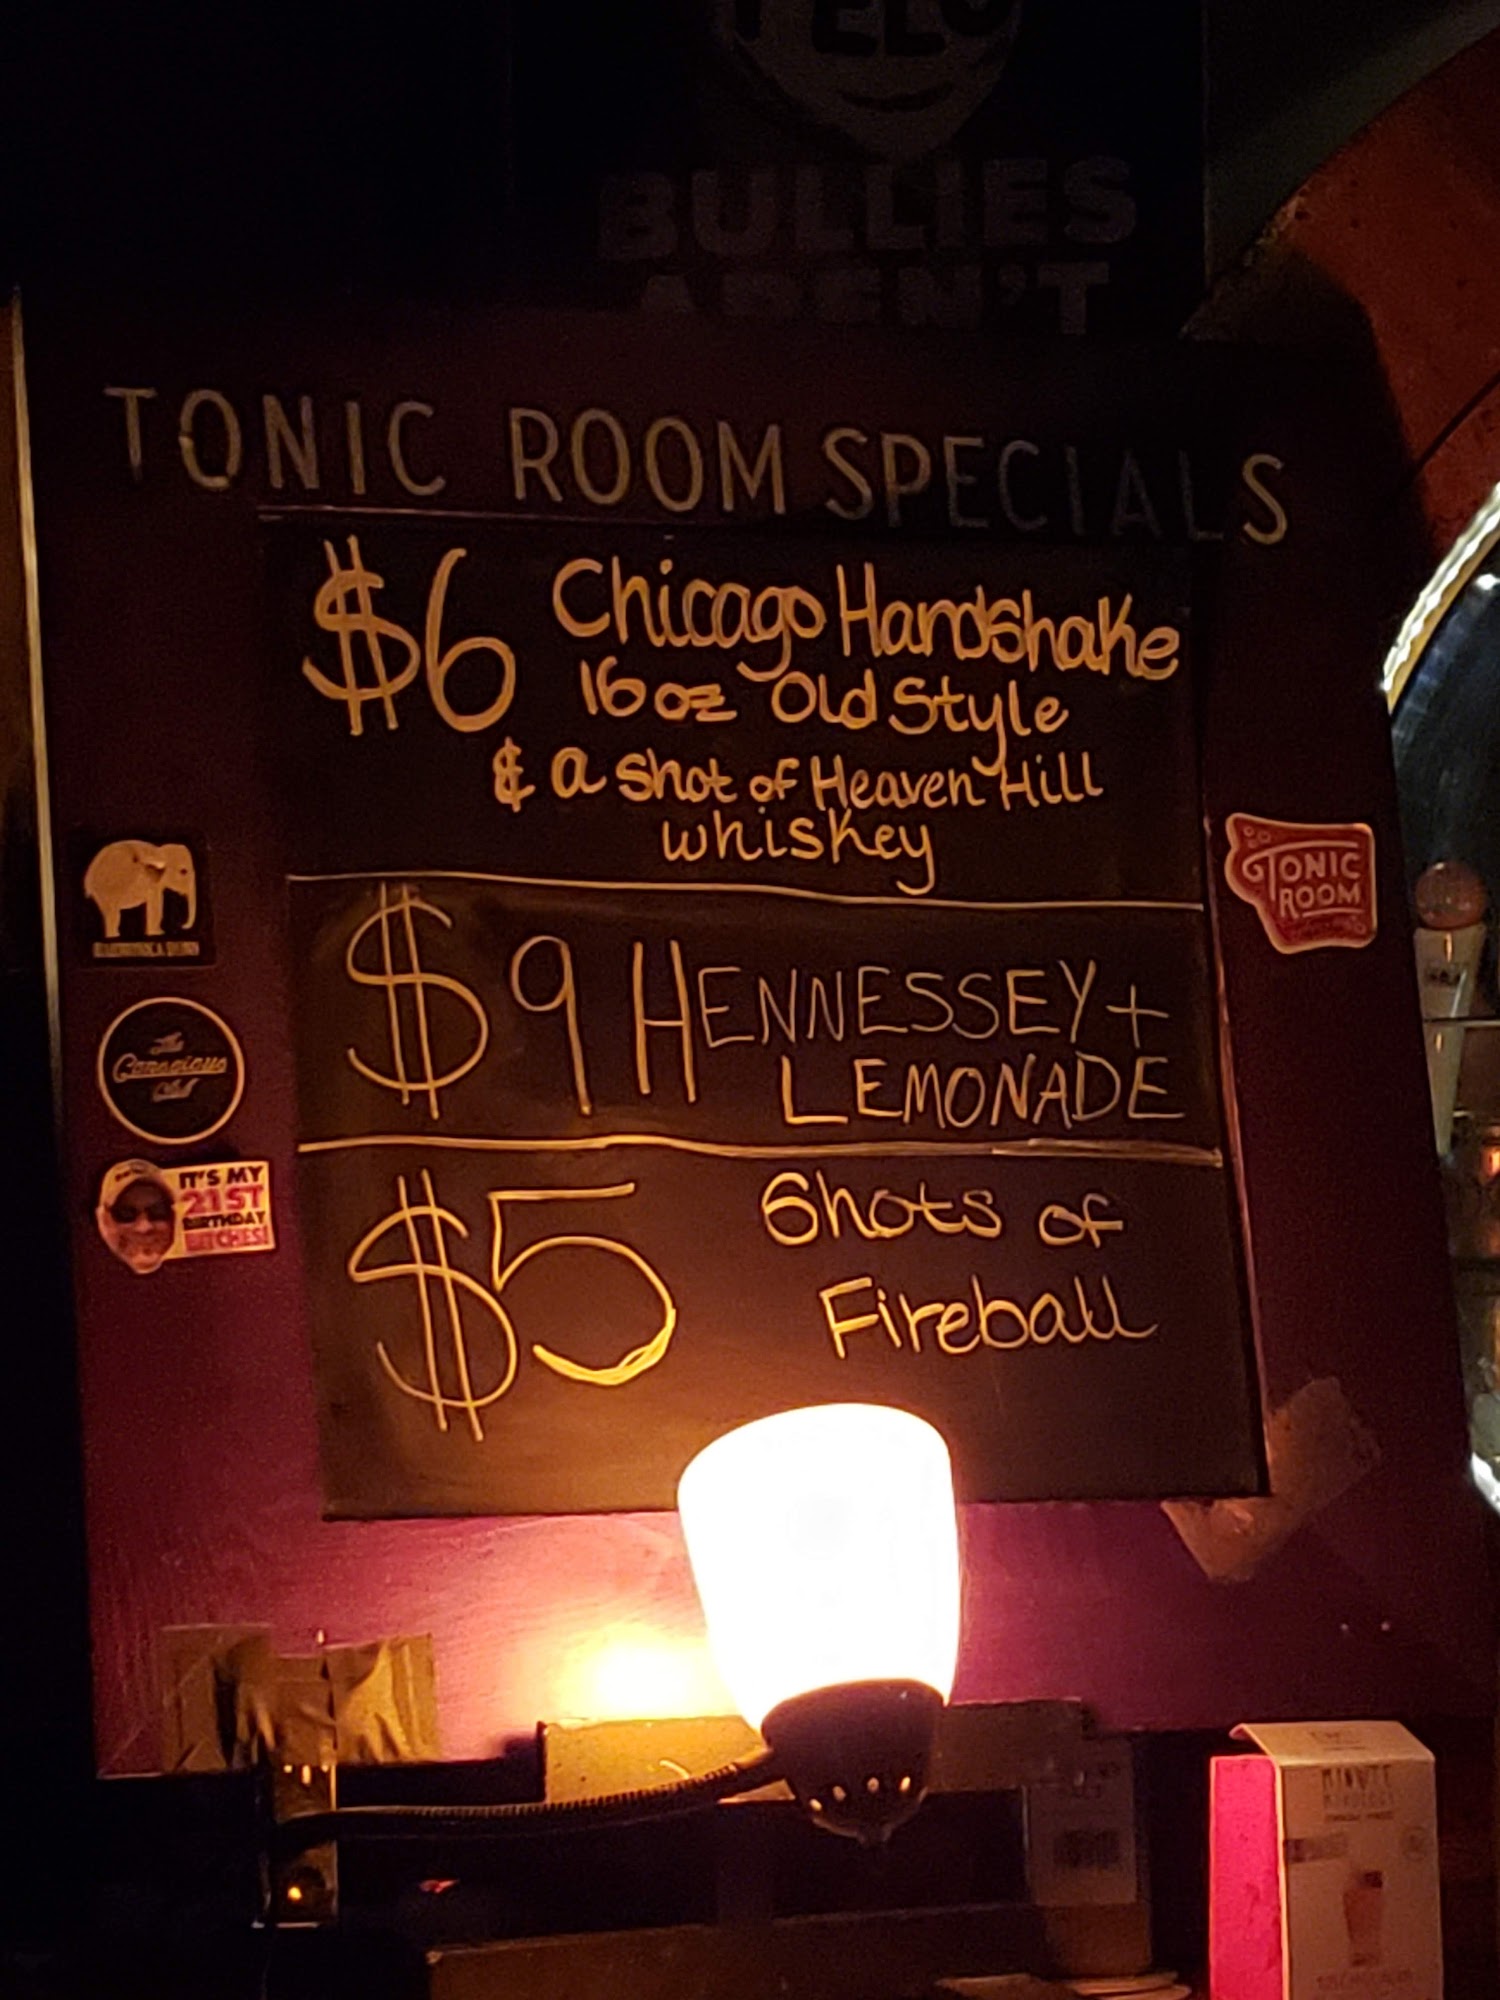 BULLIES
AREN'T
TONIC ROOM SPECIALS
$6 Chicago Handshake
16oz Old Style
& a shot of Heaven Hill
whiskey
TONIC
ROOM
$9 HENNESSEY +
LEMONADE
The
Conscious
Club
IT'S MY
21ST
BIRTHDAY
BITCHES!
$5 Shots of
Fireball
MINUTE